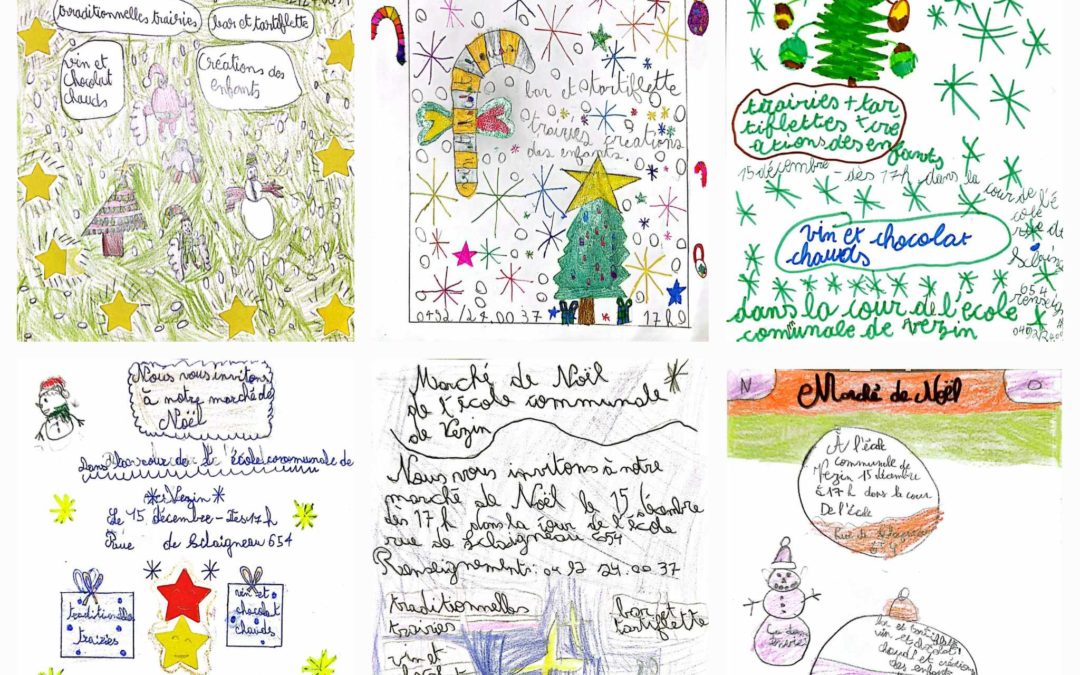 traditionnelles trairies
bar et tartiflette
vin et
chocolat
chauds
Créations des
enfants
bar et tartiflette
trairies creations
des enfants.
0492/24.00 37
17h0
trairies + tar
tiflettes + cré
ations des en
fants
15 décembre - dès 17h dans la
cour de l'é
cole
rue de
654
vin et chocolat
chauds
dans la cour de l'école
comunale de Vezin
Nous vous invitons
à notre marché de
Noël
Dans la cour de l'école communale de
Vezin
Le 15 décembre - Dès 17h
Rue de Sclaigneau 654
traditionnelles
trairies
vin et
chocolat
chauds
Marché de Noël
de l'école communale
de Vezin
Nous vous invitons à notre
marché de Noël le 15 décembre
dès 17h dans la cour de l'école
rue de Sclaigneau 654
Renseignement: 0492 24.00 37
traditionnelles
trairies
bar et
tartiflette
vin et
chocolat
N
O
Marché de Noël
À l'école
communale de
Vezin 15 décembre
à 17h dans la cour
De l'école
Rue de
bar et tartiflette
vin et chocolat
chaud et créations
des enfants